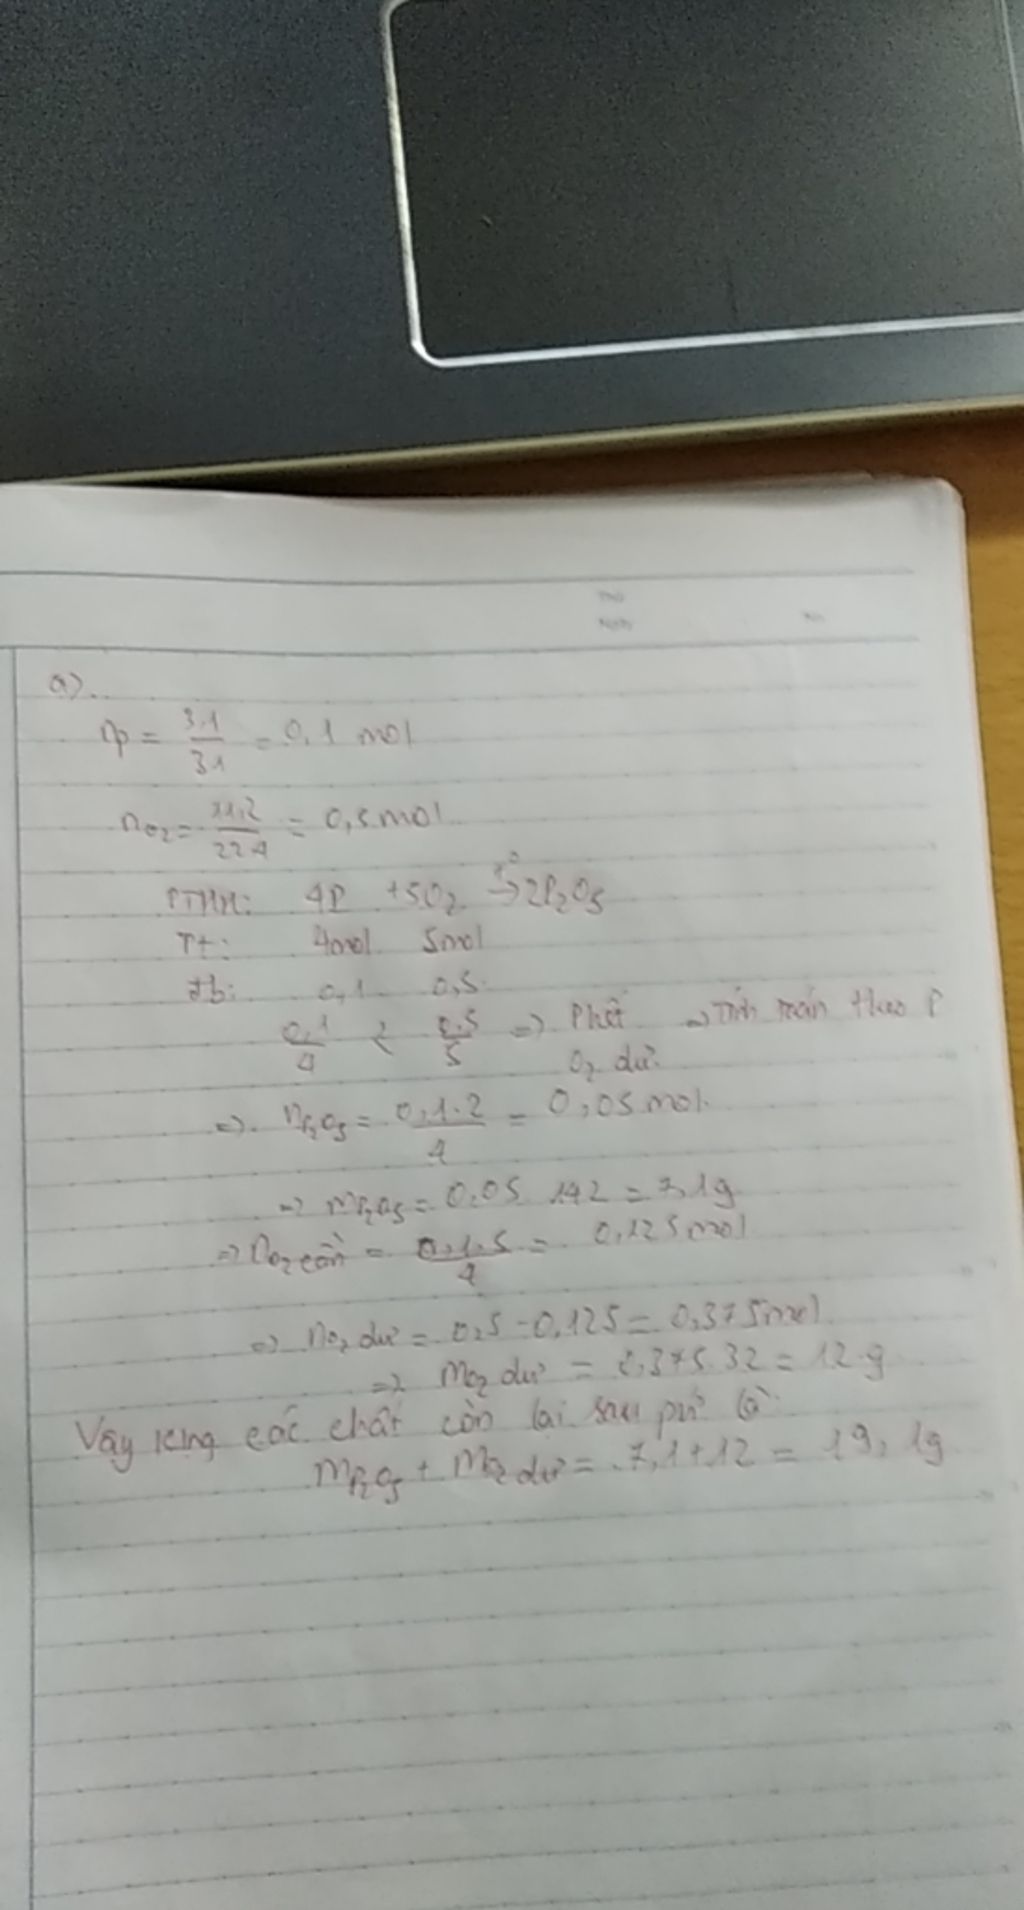 a)
nP = 3,1 / 31 = 0,1 mol
nO2 = 11,2 / 22,4 = 0,5 mol
PTHH: 4P + 5O2 t° → 2P2O5
Tt: 4mol 5mol
đb: 0,1 0,5
0,1 / 4 < 0,5 / 5 => P hết => Tính toán theo P
O2 dư
=> nP2O5 = 0,1.2 / 4 = 0,05 mol
=> mP2O5 = 0,05 . 142 = 7,1g
=> nO2 cần = 0,1.5 / 4 = 0,125 mol
=> nO2 dư = 0,5 - 0,125 = 0,375 mol
=> mO2 dư = 0,375.32 = 12 g
Vậy các chất còn lại sau pứ là
mP2O5 + mO2 dư = 7,1 + 12 = 19,1g